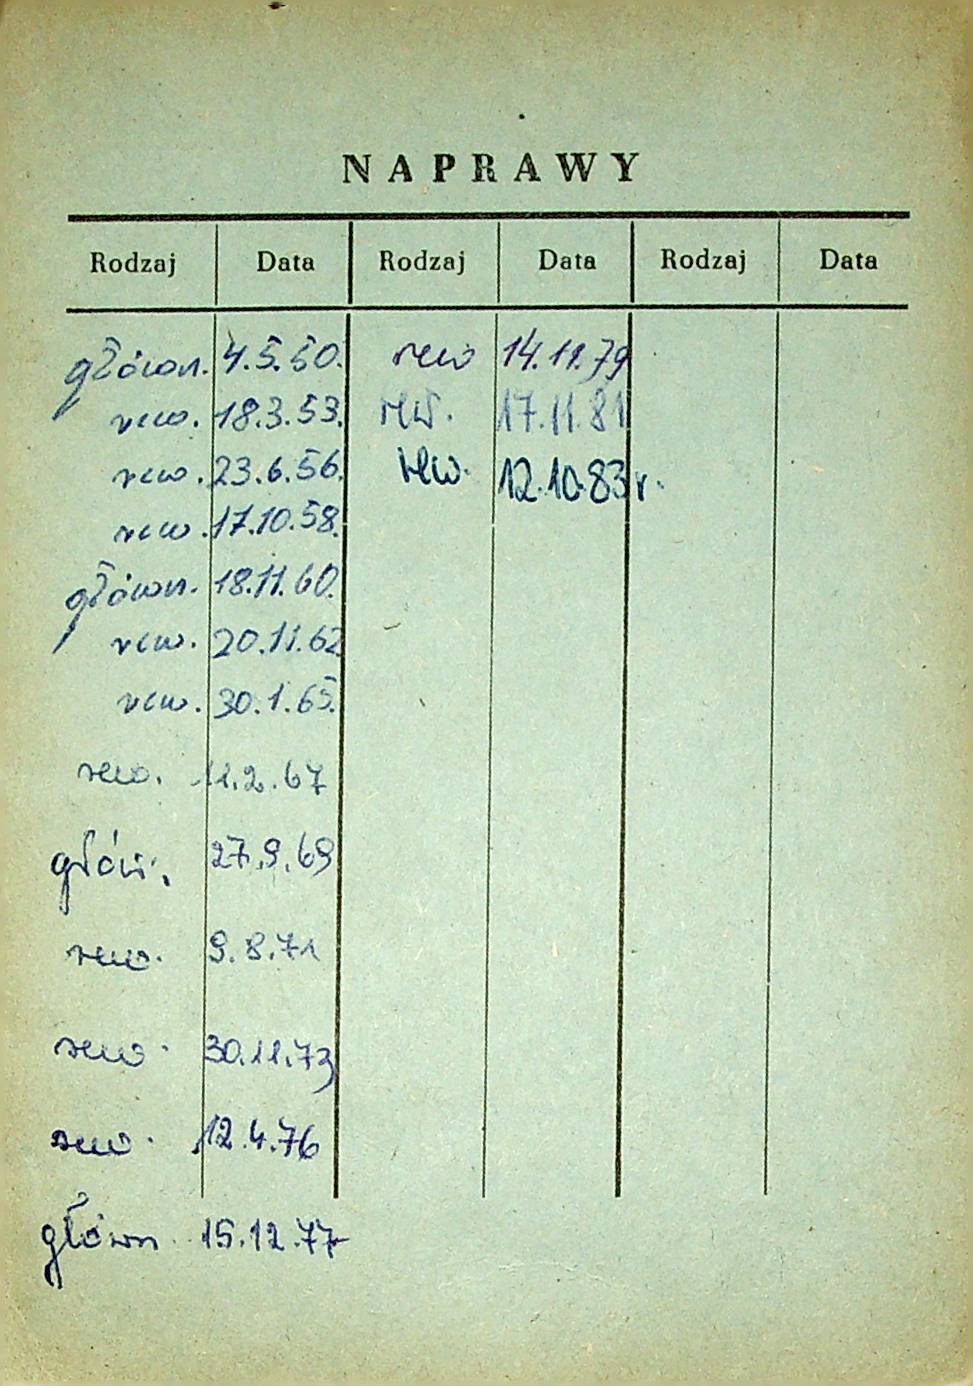 NAPRAWY
Rodzaj Data Rodzaj Data Rodzaj Data
główn. 4.5.50. rew 14.11.79
rew. 18.3.53. rew. 17.11.81
rew. 23.6.56. rew. 12.10.83 r.
rew. 17.10.58.
główn. 18.11.60.
rew. 20.11.62
rew. 30.1.65.
rew. 11.2.67
główn. 27.9.69
rew. 9.8.71
rew. 30.11.73
rew. 12.4.76
główn 15.12.77